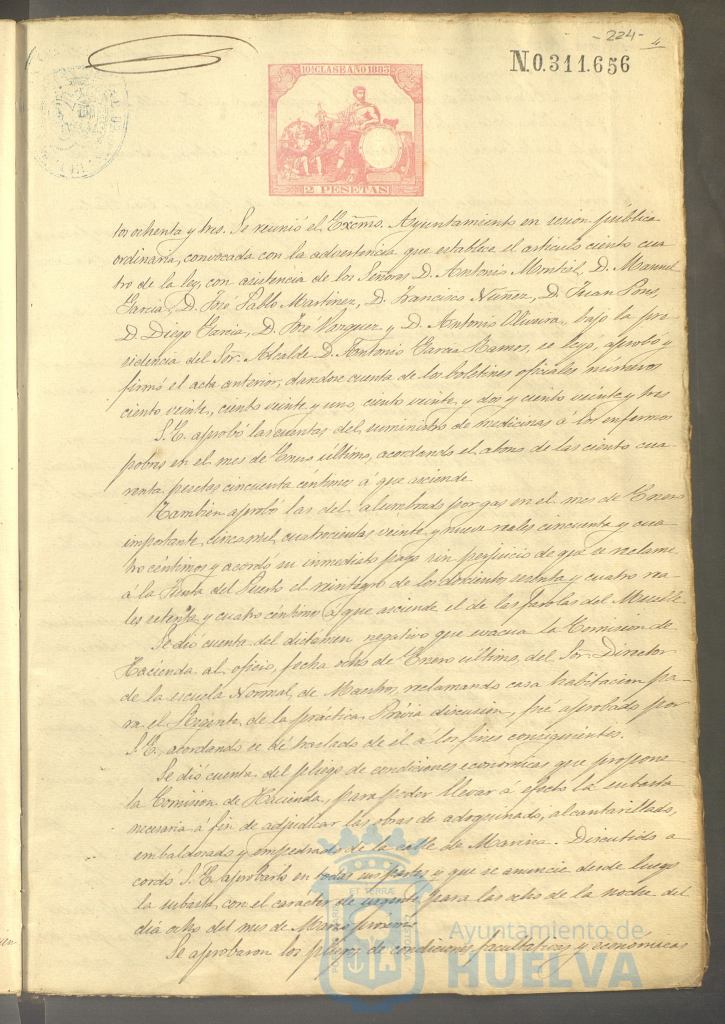 -224-
4
N.0.311.656
10ª CLASE AÑO 1883
2 PESETAS
tos ochenta y tres. Se reunió el Excmo. Ayuntamiento en sesion pública
ordinaria, convocada con la advertencia que establece el articulo ciento cua
tro de la ley, con asistencia de los Señores D. Antonio Montiel, D. Manuel
Garcia, D. José Pablo Martinez, D. Francisco Nuñez, D. Juan Pons,
D. Diego Garcia, D. José Vazquez y D. Antonio Oliveira, bajo la pre
sidencia del Sor. Alcalde D. Antonio Garcia Ramos, se leyó, aprobó y
firmó el acta anterior, dandose cuenta de los boletines oficiales números
ciento veinte, ciento veinte y uno, ciento veinte y dos y ciento veinte y tres
S. E. aprobó las cuentas del suministro de medicinas á los enfermos
pobres en el mes de Enero último, acordando el abono de las ciento cua
renta pesetas cincuenta céntimos á que asciende.
Tambien aprobó las del alumbrado por gas en el mes de Enero
importante cinco mil cuatrocientos veinte y nueve reales cincuenta y cua
tro céntimos y acordó su inmediato pago sin perjuicio de que se reclame
á la Junta del Puerto el reintegro de los doscientos setenta y cuatro rea
les setenta y cuatro céntimos á que asciende el de las farolas del Muelle
Se dió cuenta del dictámen negativo que evacua la Comision de
Hacienda al oficio, fecha ocho de Enero último, del Sor. Director
de la escuela Normal de Maestros, reclamando casa habitacion pa
ra el Regente de la práctica. Prévia discusion, fué aprobado por
S. E. acordando se dé traslado de él a los fines consiguientes.
Se dió cuenta del pliego de condiciones económicas que propone
la Comision de Hacienda, para poder llevar á efecto la subasta
necesaria á fin de adjudicar las obras de adoquinado, alcantarillado,
embaldosado y empedrado de la calle de Marina. Discutido a
cordó S. E. aprobarlo en todas sus partes y que se anuncie desde luego
la subasta con el caracter de urgente para las ocho de la noche del
dia ocho del mes de Marzo proximo
Se aprobaron los pliegos de condiciones facultativas y economicas
Ayuntamiento de
HUELVA